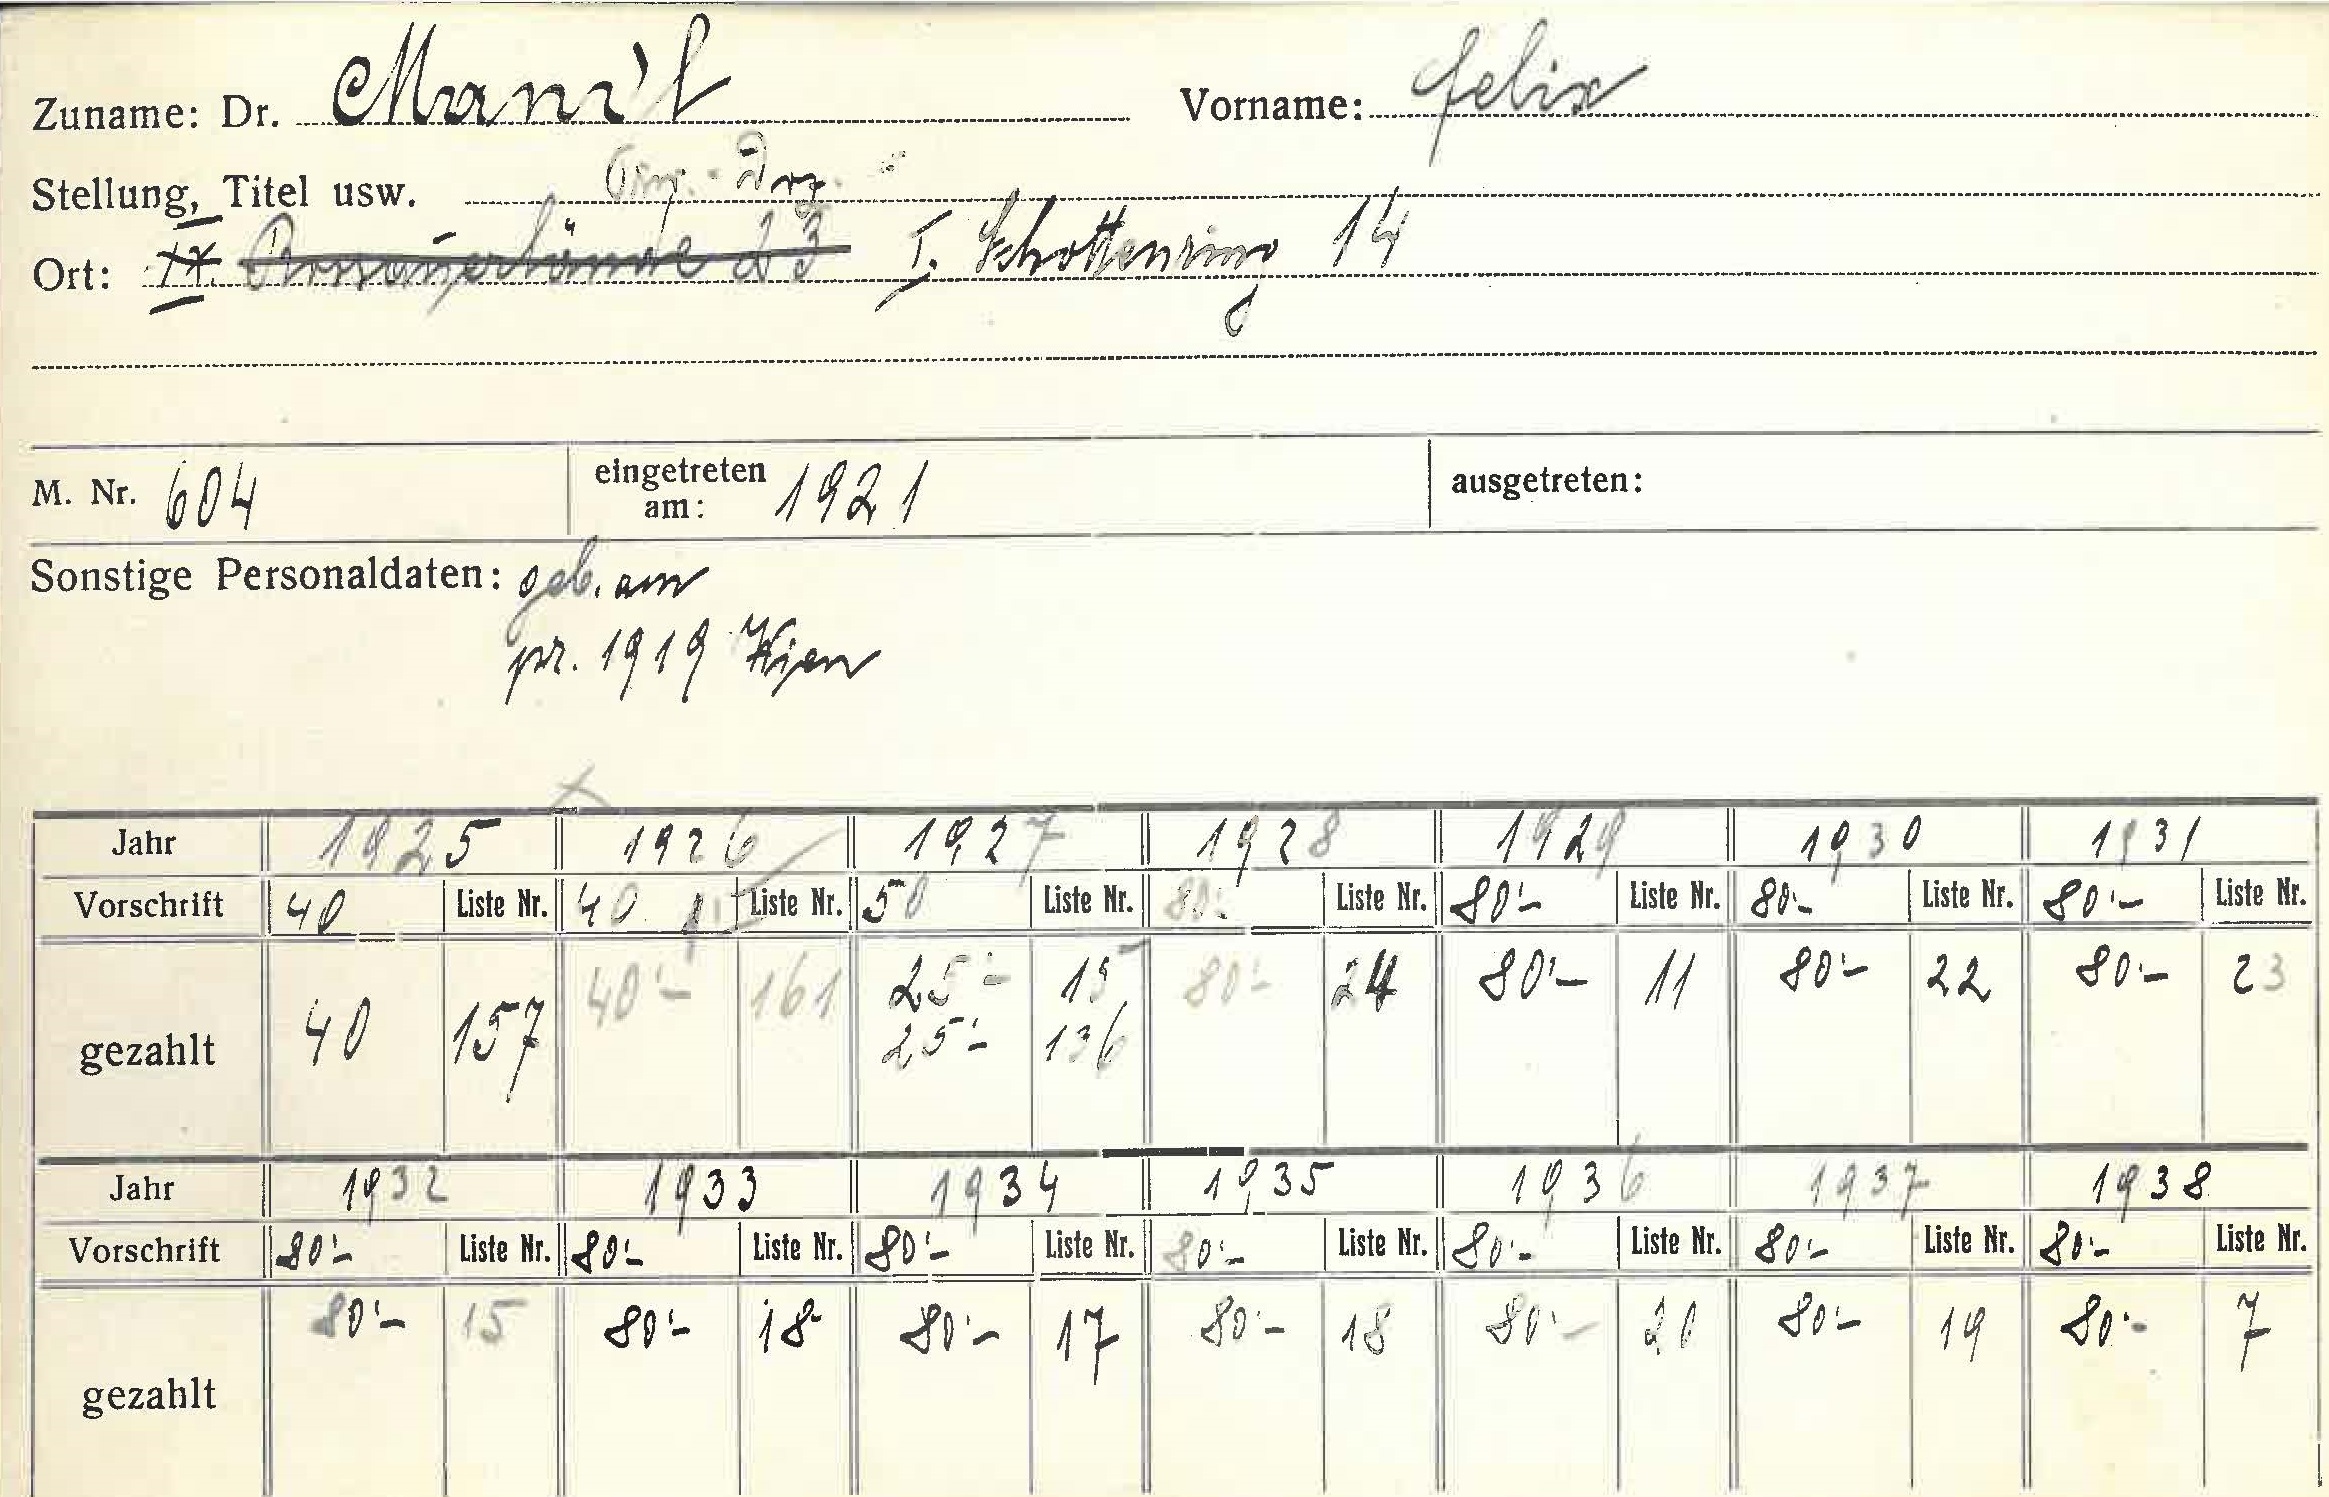 Zuname: Dr. Mandl Vorname: Felix
Stellung, Titel usw.
Ort: IX. Rossauerlände 23 I. Schottenring 14
M. Nr. 604 eingetreten am: 1921 ausgetreten:
Sonstige Personaldaten: geb. am
pr. 1919 Wien
Jahr 1925 1926 1927 1928 1929 1930 1931
Vorschrift 40 Liste Nr. 40 Liste Nr. 50 Liste Nr. 80'- Liste Nr. 80'- Liste Nr. 80'- Liste Nr. 80'- Liste Nr.
gezahlt 40 157 40'- 161 25'- 15 80'- 24 80'- 11 80'- 22 80'- 23
25'- 136
Jahr 1932 1933 1934 1935 1936 1937 1938
Vorschrift 80'- Liste Nr. 80'- Liste Nr. 80'- Liste Nr. 80'- Liste Nr. 80'- Liste Nr. 80'- Liste Nr. 80'- Liste Nr.
gezahlt 80'- 15 80'- 18 80'- 17 80'- 18 80'- 20 80'- 19 80'- 7